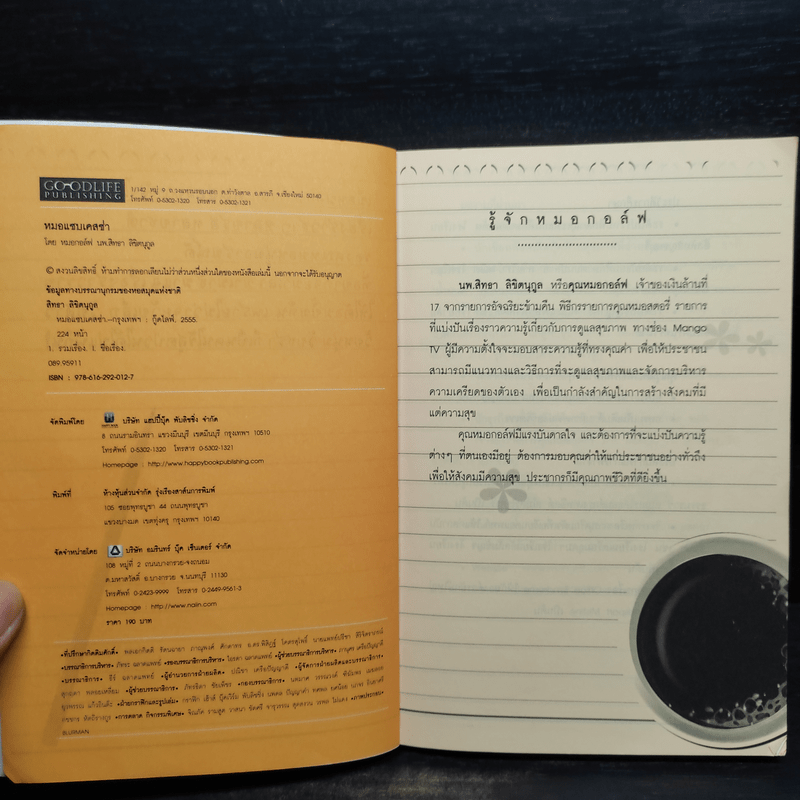 GOODLIFE
PUBLISHING
1/142 หมู่ 9 ถ.วงแหวนรอบนอก ต.ท่าวังตาล อ.สารภี จ.เชียงใหม่ 50140
โทรศัพท์ 0-5302-1320 โทรสาร 0-5302-1321
หมอแซบเคสซ่า
โดย หมอกอล์ฟ นพ.สิทธา ลิขิตนุกูล
© สงวนลิขสิทธิ์ ห้ามทำการลอกเลียนไม่ว่าส่วนหนึ่งส่วนใดของหนังสือเล่มนี้ นอกจากจะได้รับอนุญาต
ข้อมูลทางบรรณานุกรมของหอสมุดแห่งชาติ
สิทธา ลิขิตนุกูล
หมอแซบเคสซ่า.--กรุงเทพฯ : กู๊ดไลฟ์, 2555.
224 หน้า
1. รวมเรื่อง. I. ชื่อเรื่อง.
089.95911
ISBN : 978-616-292-012-7
จัดพิมพ์โดย บริษัท แฮปปี้บุ๊ค พับลิชชิ่ง จำกัด
8 ถนนรามอินทรา แขวงมีนบุรี เขตมีนบุรี กรุงเทพฯ 10510
โทรศัพท์ 0-5302-1320 โทรสาร 0-5302-1321
Homepage : http://www.happybookpublishing.com
พิมพ์ที่ ห้างหุ้นส่วนจำกัด รุ่งเรืองสาส์นการพิมพ์
105 ซอยพุทธบูชา 44 ถนนพุทธบูชา
แขวงบางมด เขตทุ่งครุ กรุงเทพฯ 10140
จัดจำหน่ายโดย บริษัท อมรินทร์ บุ๊ค เซ็นเตอร์ จำกัด
108 หมู่ที่ 2 ถนนบางกรวย-จงถนอม
ต.มหาสวัสดิ์ อ.บางกรวย จ.นนทบุรี 11130
โทรศัพท์ 0-2423-9999 โทรสาร 0-2449-9561-3
Homepage : http://www.naiin.com
ราคา 190 บาท
•ที่ปรึกษากิตติมศักดิ์•
•บรรณาธิการบริหาร• •รองบรรณาธิการบริหาร• •ผู้ช่วยบรรณาธิการบริหาร•
•บรรณาธิการ• •ผู้อำนวยการฝ่ายผลิต• •ผู้จัดการฝ่ายผลิตและบรรณาธิการ•
•ผู้ช่วยบรรณาธิการ• •กองบรรณาธิการ•
•ฝ่ายกราฟิกและรูปเล่ม•
•การตลาด กิจกรรมพิเศษ• •ภาพประกอบ•
BLURMAN
รู้จักหมอกอล์ฟ
นพ.สิทธา ลิขิตนุกูล หรือคุณหมอกอล์ฟ เจ้าของเงินล้านที่
17 จากรายการอัจฉริยะข้ามคืน พิธีกรรายการคุณหมอสตอรี่ รายการ
ที่แบ่งปันเรื่องราวความรู้เกี่ยวกับการดูแลสุขภาพ ทางช่อง Mango
TV ผู้มีความตั้งใจจะมอบสาระความรู้ที่ทรงคุณค่า เพื่อให้ประชาชน
สามารถมีแนวทางและวิธีการที่จะดูแลสุขภาพและจัดการบริหาร
ความเครียดของตัวเอง เพื่อเป็นกำลังสำคัญในการสร้างสังคมที่มี
แต่ความสุข
คุณหมอกอล์ฟมีแรงบันดาลใจ และต้องการที่จะแบ่งปันความรู้
ต่างๆ ที่ตนเองมีอยู่ ต้องการมอบคุณค่าให้แก่ประชาชนอย่างทั่วถึง
เพื่อให้สังคมมีความสุข ประชากรก็มีคุณภาพชีวิตที่ดียิ่งขึ้น